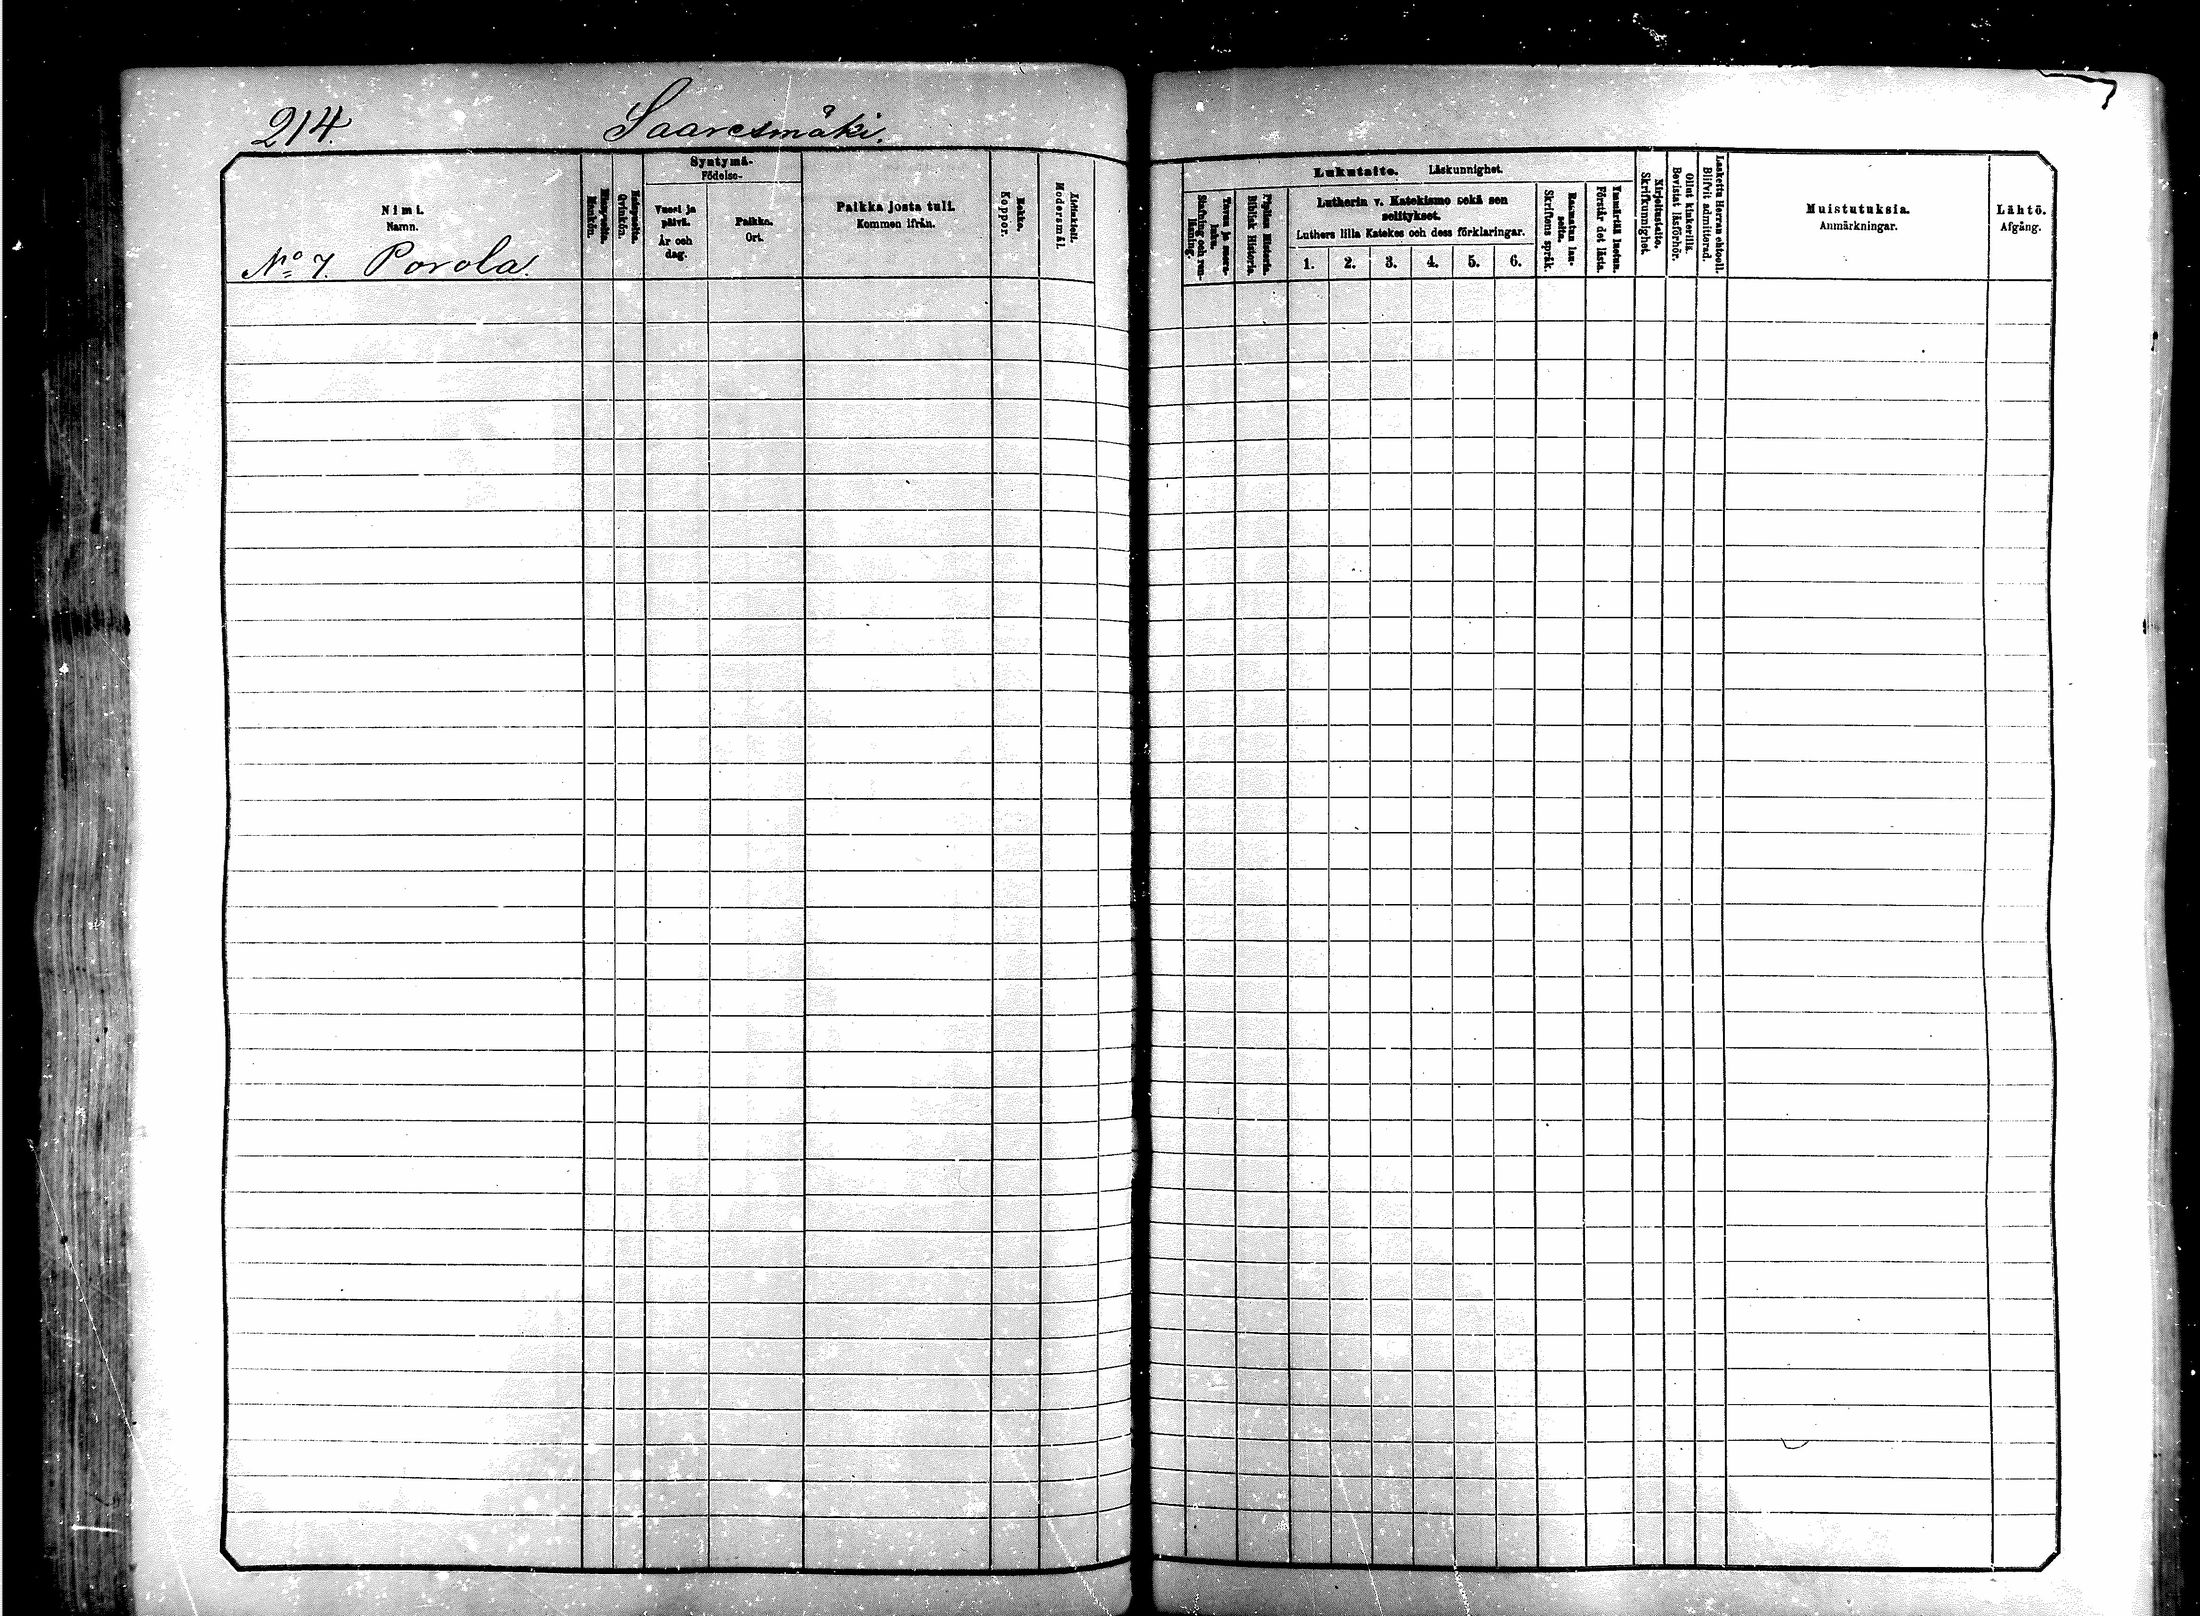 214. Saaresmäki.
Nimi.
Namn.
No 7. Porola.
Miespuolta.
Mankön.
Naispuolta.
Qvinkön.
Syntymä-
Födelse-
Vuosi ja
päivä.
År och
dag.
Paikka.
Ort.
Paikka josta tuli.
Kommen ifrån.
Rokko.
Koppor.
Äitinkieli.
Modersmål.
Lukutaito. Läskunnighet.
Tavuu ja suora-
luku.
Stafning och ren-
läsning.
Piplian Historia.
Biblisk Historia.
Lutherin v. Katekismo sekä sen
selitykset.
Luthers lilla Katekes och dess förklaringar.
1. 2. 3. 4. 5. 6.
Raamatun lau-
seita.
Skriftens språk.
Ymmärtää luetun.
Förstår det lästa.
Kirjoitustaito.
Skrifkunnighet.
Ollut kinkerillä.
Bevistat läsförhör.
Laskettu Herran ehtooll.
Blifvit admitterad.
Muistutuksia.
Anmärkningar.
Lähtö.
Afgång.